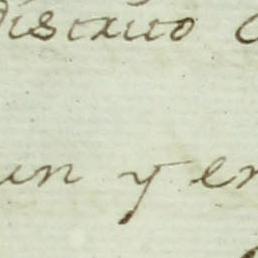 distrito
un y en